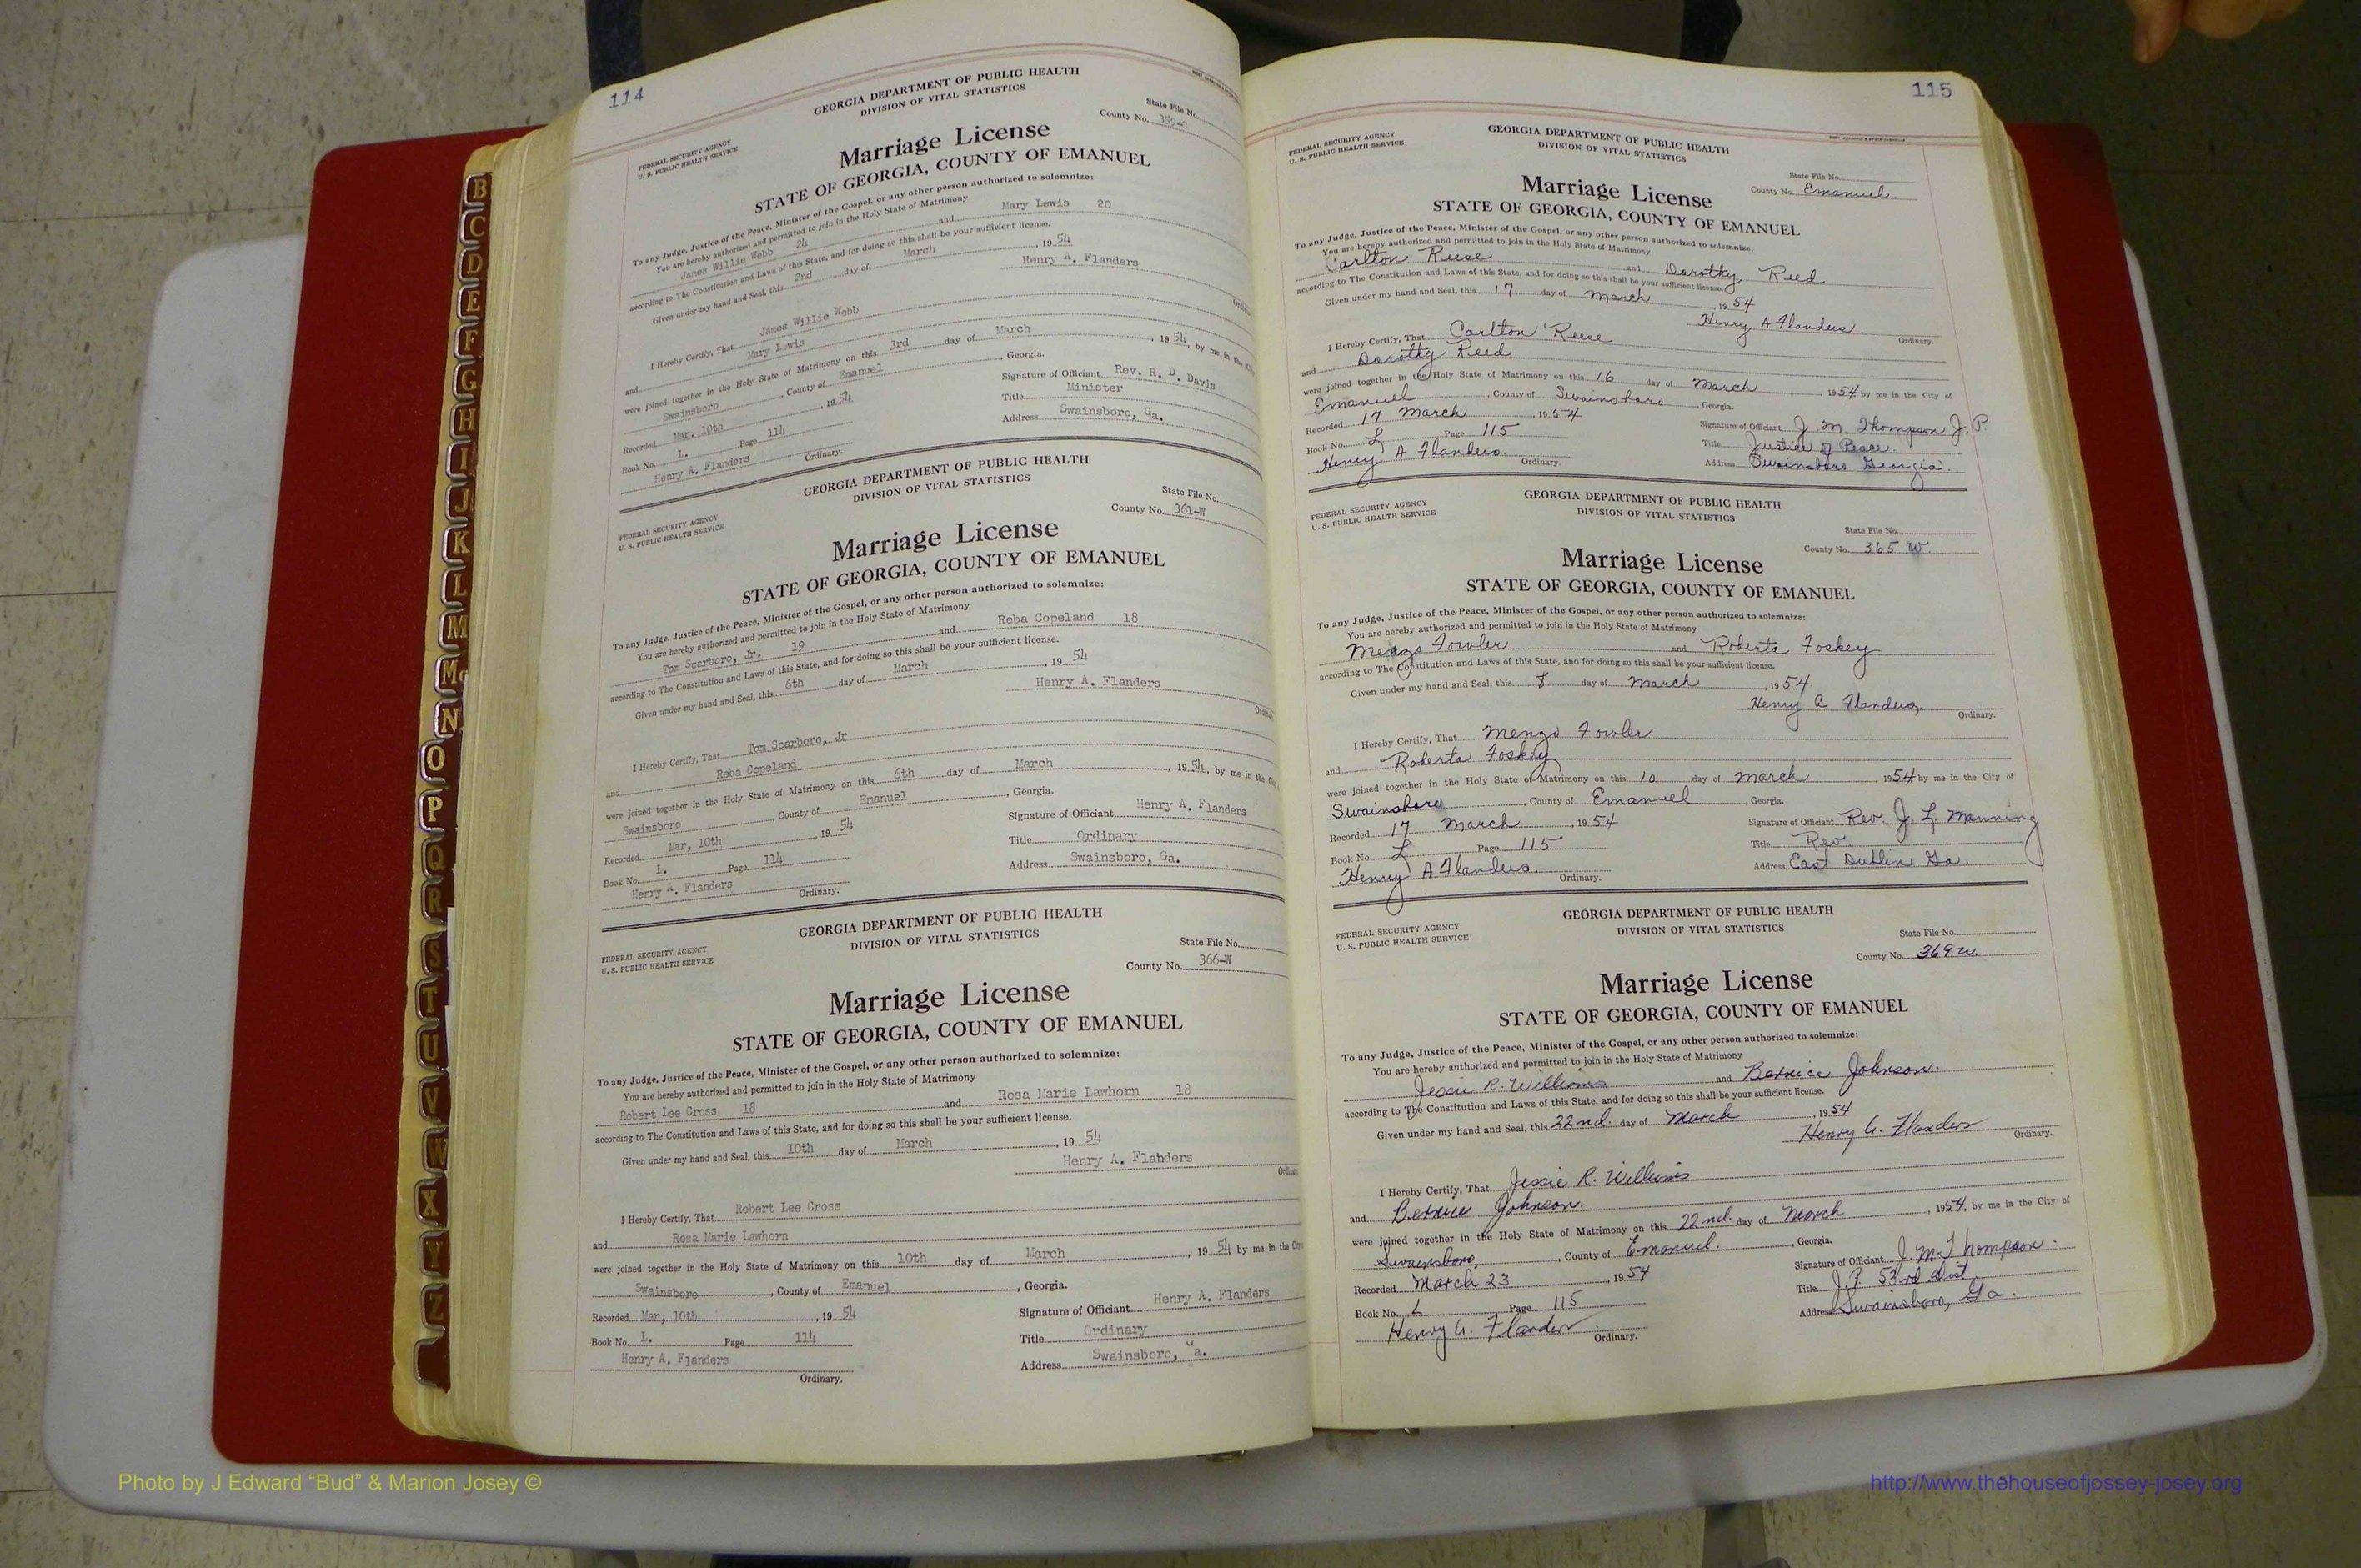 114
GEORGIA DEPARTMENT OF PUBLIC HEALTH
DIVISION OF VITAL STATISTICS
FEDERAL SECURITY AGENCY
U. S. PUBLIC HEALTH SERVICE
State File No.
County No. 359-C
Marriage License
STATE OF GEORGIA, COUNTY OF EMANUEL
To any Judge, Justice of the Peace, Minister of the Gospel, or any other person authorized to solemnize:
You are hereby authorized and permitted to join in the Holy State of Matrimony
James Willie Webb 24 and Mary Lewis 20
according to The Constitution and Laws of this State, and for doing so this shall be your sufficient license.
Given under my hand and Seal, this 2nd day of March, 1954
Henry A. Flanders
I Hereby Certify, That James Willie Webb
and Mary Lewis
were joined together in the Holy State of Matrimony on this 3rd day of March, 1954, by me in the
Swainsboro, County of Emanuel, Georgia.
Recorded Mar, 10th, 1954
Signature of Officiant Rev. R. D. Davis
Title Minister
Book No. L. Page 114
Address Swainsboro, Ga.
Henry A. Flanders Ordinary.
GEORGIA DEPARTMENT OF PUBLIC HEALTH
DIVISION OF VITAL STATISTICS
FEDERAL SECURITY AGENCY
U. S. PUBLIC HEALTH SERVICE
State File No.
County No. 361-W
Marriage License
STATE OF GEORGIA, COUNTY OF EMANUEL
To any Judge, Justice of the Peace, Minister of the Gospel, or any other person authorized to solemnize:
You are hereby authorized and permitted to join in the Holy State of Matrimony
Tom Scarboro, Jr. 19 and Reba Copeland 18
according to The Constitution and Laws of this State, and for doing so this shall be your sufficient license.
Given under my hand and Seal, this 6th day of March, 1954
Henry A. Flanders
I Hereby Certify, That Tom Scarboro, Jr
and Reba Copeland
were joined together in the Holy State of Matrimony on this 6th day of March, 1954, by me in the
Swainsboro, County of Emanuel, Georgia.
Recorded Mar, 10th, 1954
Signature of Officiant Henry A. Flanders
Title Ordinary
Book No. L. Page 114
Address Swainsboro, Ga.
Henry A. Flanders Ordinary.
GEORGIA DEPARTMENT OF PUBLIC HEALTH
DIVISION OF VITAL STATISTICS
FEDERAL SECURITY AGENCY
U. S. PUBLIC HEALTH SERVICE
State File No.
County No. 366-W
Marriage License
STATE OF GEORGIA, COUNTY OF EMANUEL
To any Judge, Justice of the Peace, Minister of the Gospel, or any other person authorized to solemnize:
You are hereby authorized and permitted to join in the Holy State of Matrimony
Robert Lee Cross 18 and Rosa Marie Lawhorn 18
according to The Constitution and Laws of this State, and for doing so this shall be your sufficient license.
Given under my hand and Seal, this 10th day of March, 1954
Henry A. Flahders
I Hereby Certify, That Robert Lee Cross
and Rosa Marie Lawhorn
were joined together in the Holy State of Matrimony on this 10th day of March, 1954 by me in the
Swainsboro, County of Emanuel, Georgia.
Recorded Mar, 10th, 1954
Signature of Officiant Henry A. Flanders
Book No. L. Page 114
Title Ordinary
Henry A. Flanders Ordinary.
Address Swainsboro, Ga.
115
FEDERAL SECURITY AGENCY
U. S. PUBLIC HEALTH SERVICE
GEORGIA DEPARTMENT OF PUBLIC HEALTH
DIVISION OF VITAL STATISTICS
State File No.
County No. Emanuel.
Marriage License
STATE OF GEORGIA, COUNTY OF EMANUEL
To any Judge, Justice of the Peace, Minister of the Gospel, or any other person authorized to solemnize:
You are hereby authorized and permitted to join in the Holy State of Matrimony
Carlton Reese and Dorothy Reed
according to The Constitution and Laws of this State, and for doing so this shall be your sufficient license.
Given under my hand and Seal, this 17 day of March, 1954
Henry A Flanders. Ordinary.
I Hereby Certify, That Carlton Reese
and Dorothy Reed
were joined together in the Holy State of Matrimony on this 16 day of March, 1954 by me in the City of
Emanuel, County of Swainsboro, Georgia.
Recorded 17 March, 1954
Signature of Officiant J. M. Thompson J. P
Book No. L Page 115
Title Justice of Peace.
Henry A Flanders. Ordinary.
Address Swainsboro Georgia.
GEORGIA DEPARTMENT OF PUBLIC HEALTH
DIVISION OF VITAL STATISTICS
FEDERAL SECURITY AGENCY
U. S. PUBLIC HEALTH SERVICE
State File No.
County No. 365 W.
Marriage License
STATE OF GEORGIA, COUNTY OF EMANUEL
To any Judge, Justice of the Peace, Minister of the Gospel, or any other person authorized to solemnize:
You are hereby authorized and permitted to join in the Holy State of Matrimony
Menzo Fowler and Roberta Foskey
according to The Constitution and Laws of this State, and for doing so this shall be your sufficient license.
Given under my hand and Seal, this 8 day of March, 1954.
Henry A Flanders, Ordinary.
I Hereby Certify, That Menzo Fowler
and Roberta Foskey
were joined together in the Holy State of Matrimony on this 10 day of March, 1954 by me in the City of
Swainsboro, County of Emanuel, Georgia.
Recorded 17 March, 1954
Signature of Officiant Rev. J. L. Manning
Book No. L Page 115
Title Rev.
Henry A Flanders. Ordinary.
Address East Dublin Ga.
GEORGIA DEPARTMENT OF PUBLIC HEALTH
DIVISION OF VITAL STATISTICS
FEDERAL SECURITY AGENCY
U. S. PUBLIC HEALTH SERVICE
State File No.
County No. 369 w.
Marriage License
STATE OF GEORGIA, COUNTY OF EMANUEL
To any Judge, Justice of the Peace, Minister of the Gospel, or any other person authorized to solemnize:
You are hereby authorized and permitted to join in the Holy State of Matrimony
Jessie R. Williams and Bernice Johnson.
according to The Constitution and Laws of this State, and for doing so this shall be your sufficient license.
Given under my hand and Seal, this 22nd. day of March, 1954
Henry A. Flanders Ordinary.
I Hereby Certify, That Jessie R. Williams
and Bernice Johnson.
were joined together in the Holy State of Matrimony on this 22nd. day of March, 1954, by me in the City of
Swainsboro, County of Emanuel., Georgia.
Recorded March 23, 1954
Signature of Officiant J. M. Thompson.
Title J.P. 53rd Dist
Book No. L Page 115
Address Swainsboro, Ga.
Henry A. Flanders. Ordinary.
B
C
D
E
F
G
H
I
J
K
L
M
Mc
N
O
P
Q
R
S
T
U
V
W
X
Y
Z
Photo by J Edward “Bud” & Marion Josey ©
http://www.thehouseofjossey-josey.org